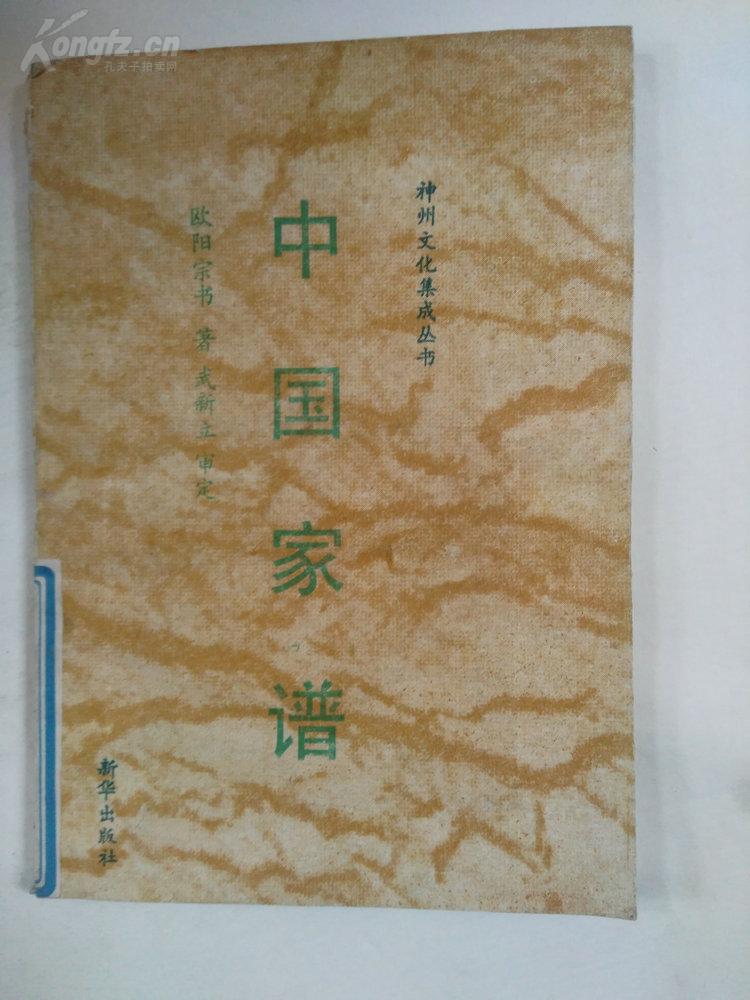 Kongfz.cn
孔夫子拍卖网
神州文化集成丛书
中国家谱
欧阳宗书 著 武新立 审定
新华出版社